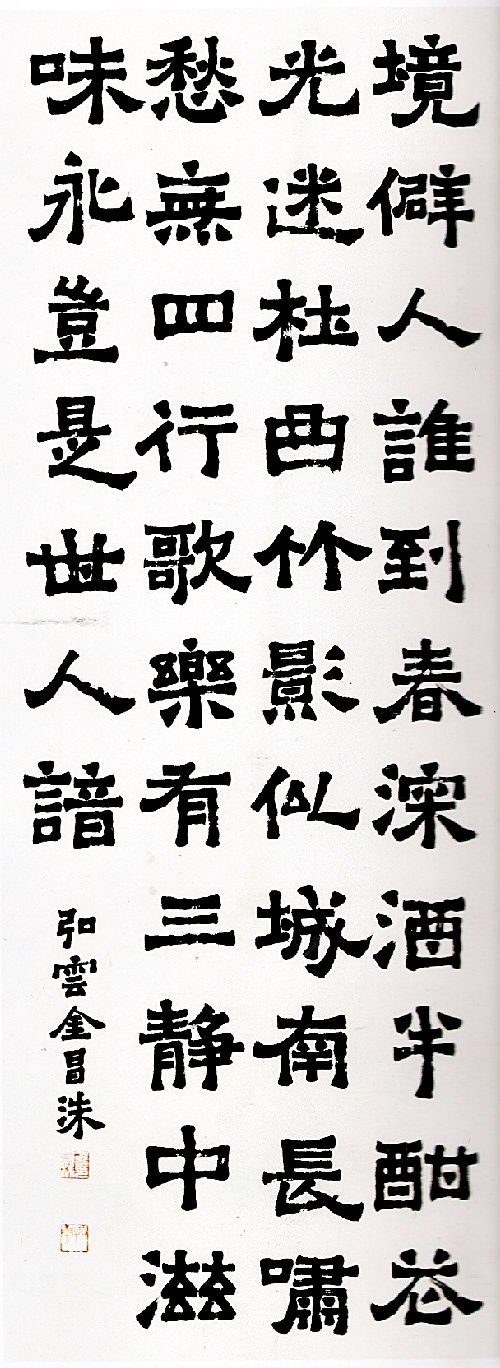 境僻人誰到春深酒半酣花
光迷杜曲竹影似城南長嘯
愁無四行歌樂有三靜中滋
味永豈是世人諳
弘雲金昌洙